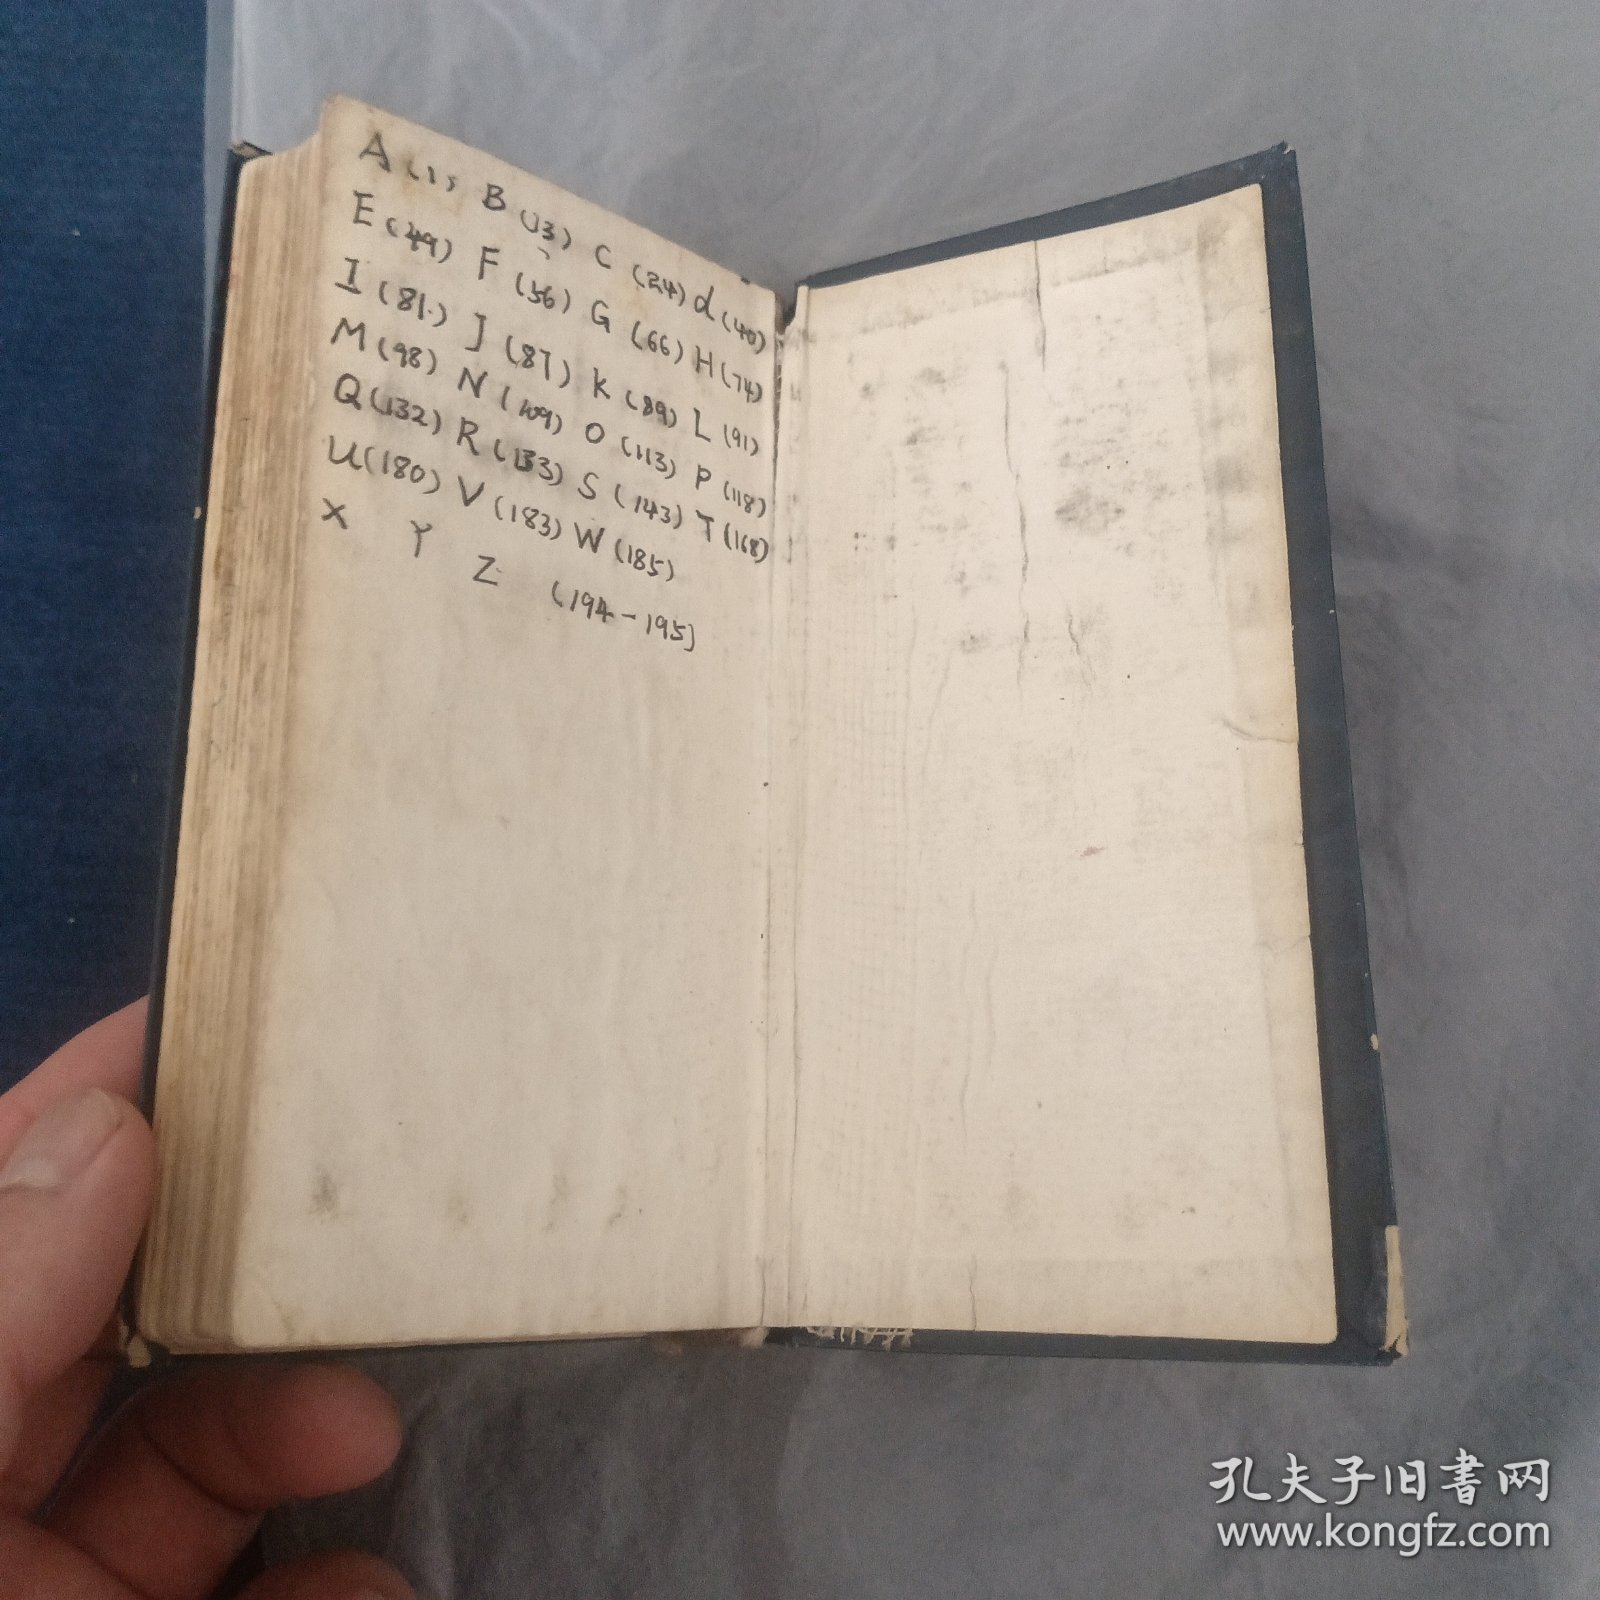 A (1) B (13) C (24) d (40)
E (49) F (56) G (66) H (74)
I (81) J (87) K (89) L (91)
M (98) N (109) O (113) P (118)
Q (132) R (133) S (143) T (168)
U (180) V (183) W (185)
X Y Z (194-195)
孔夫子旧书网
www.kongfz.com